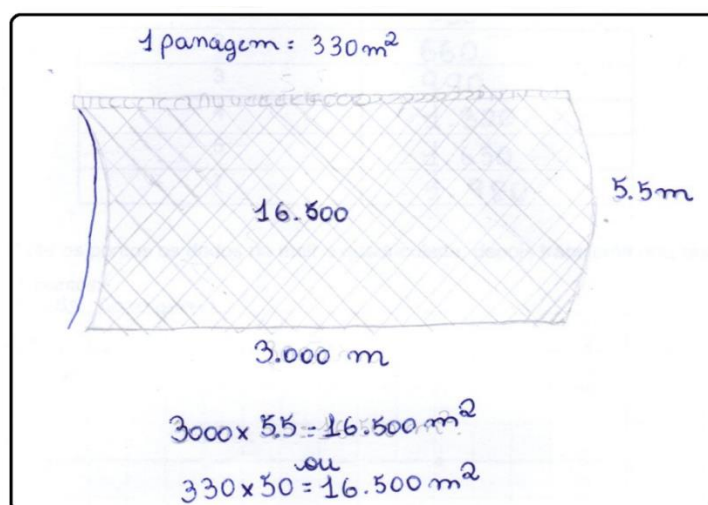 1 panagem = 330 m²
16.500
5.5 m
3.000 m
3000 x 5.5 = 16.500 m²
ou
330 x 50 = 16.500 m²